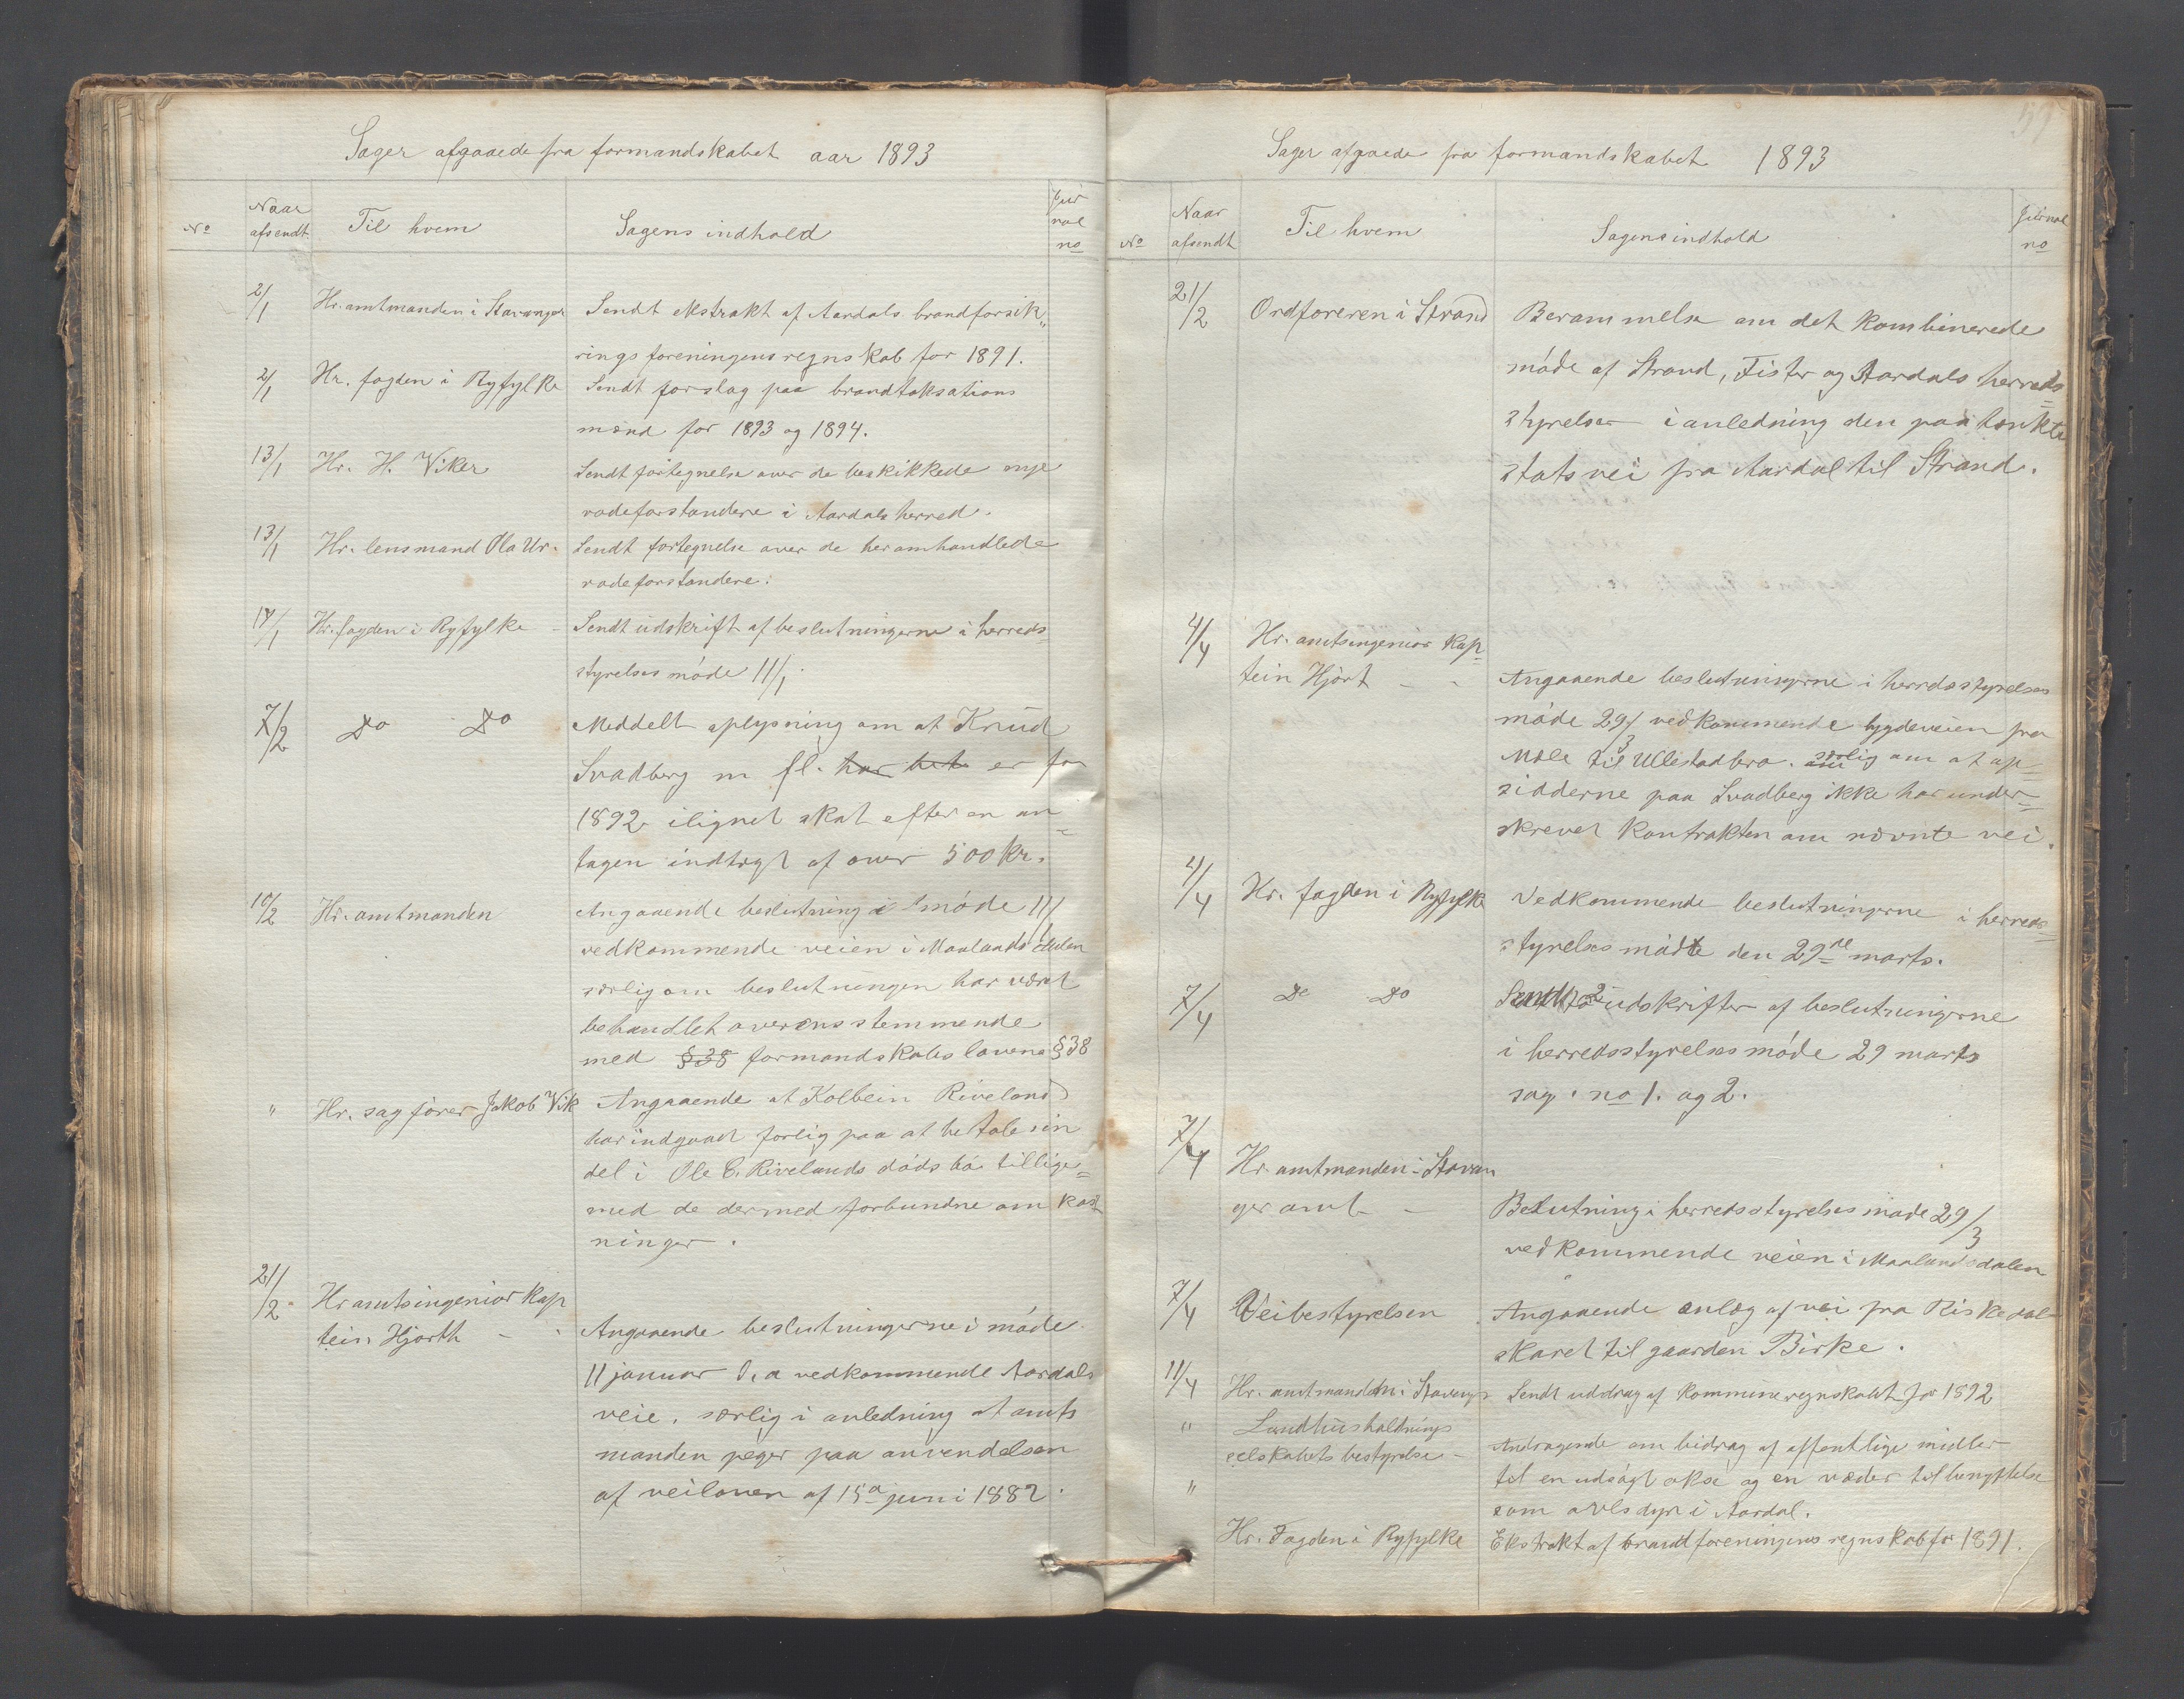 Sager afgaaede fra formandskabet aar 1893
No
Naar afsendt
Til hvem
Sagens indhold
Jur nal no
2/1 Hr. amtmanden i Stavanger Sendt ekstrakt af Aardals brandforsik„
rings foreningens regnskab for 1891.
2/1 Hr. fogden i Ryfylke Sendt forslag paa brandtaksations
mænd for 1893 og 1894.
13/1 Hr. H. Viker Sendt fortegnelse over de beskikkede nye
rodeforstandere i Aardals herred.
13/1 Hr. lensmand Ola Ur. Sendt fortegnelse over de heromhandlede
rodeforstandere.
14/1 Hr. fogden i Ryfylke - Sendt udskrift af beslutningerne i herreds=
styrelses møde 11/1.
7/2 Do Do Meddelt oplysning om at Knud
Svadberg m fl. har bet er for
1892 ilignet skat efter en an=
tagen indtægt af over 500 kr.
10/2 Hr. amtmanden Angaaende beslutning i møde 11/1
vedkommende veien i Maalandsdalen
særlig om beslutningen har været
behandlet overensstemmende
med §38 formandskabslovens §38
" Hr. sagfører Jakob Vik Angaaende at Kolbein Riveland
har indgaaet forlig paa at betale sin
del i Ole E. Rivelands dødsbo tillige=
med de dermed forbundne omkost
ninger.
21/2 Hr amtsingeniør kap
tein Hjorth - - Angaaende beslutningerne i møde
11 januar d, a vedkommende Aardals
veie, særlig i anledning at amts
manden peger paa anvendelsen
af veiloven af 15de juni 1882.
59
Sager afgaaede fra formandskabet 1893
No
Naar afsendt
Til hvem
Sagens indhold
Jurnal no
21/2 Ordføreren i Strand Berammelse om det kombinerede
møde af Strand, Fister og Aardals herreds=
styrelser i anledning den paatænkte
statsvei fra Aardal til Strand.
4/4 Hr. amtsingeniør kap=
tein Hjort - - Angaaende beslutningerne i herredsstyrelses
møde 29/3 vedkommende bygdeveien fra
Mæle til Ullestadbro. særlig om at op=
sidderne paa Svadberg ikke har under=
skrevet kontrakten om nævnte vei.
4/4 Hr. fogden i Ryfylke Vedkommende beslutningerne i herreds=
styrelses møte den 29de marts.
7/4 Do Do Sendt 2 udskrifter af beslutningerne
i herredsstyrelses møde 29 marts
sag. no 1. og 2.
7/4 Hr amtmanden i Stavan
ger amt - Beslutning i herredsstyrelses møde 29/3
vedkommende veien i Maalandsdalen
7/4 Veibestyrelsen Angaaende anlæg af vei fra Riskedal
skaret til gaarden Birke.
11/4 Hr. amtmanden i Stavanger Sendt uddrag af kommuneregnskabet for 1892
" Landhusholdnings
selskabets bestyrelse - Andragende om bidrag af offentlige midler
" til en udsøgt okse og en væder til benyttelse
som avlsdyr i Aardal.
Hr. Fogden i Ryfylke Ekstrakt af brandforeningens regnskab for 1891.